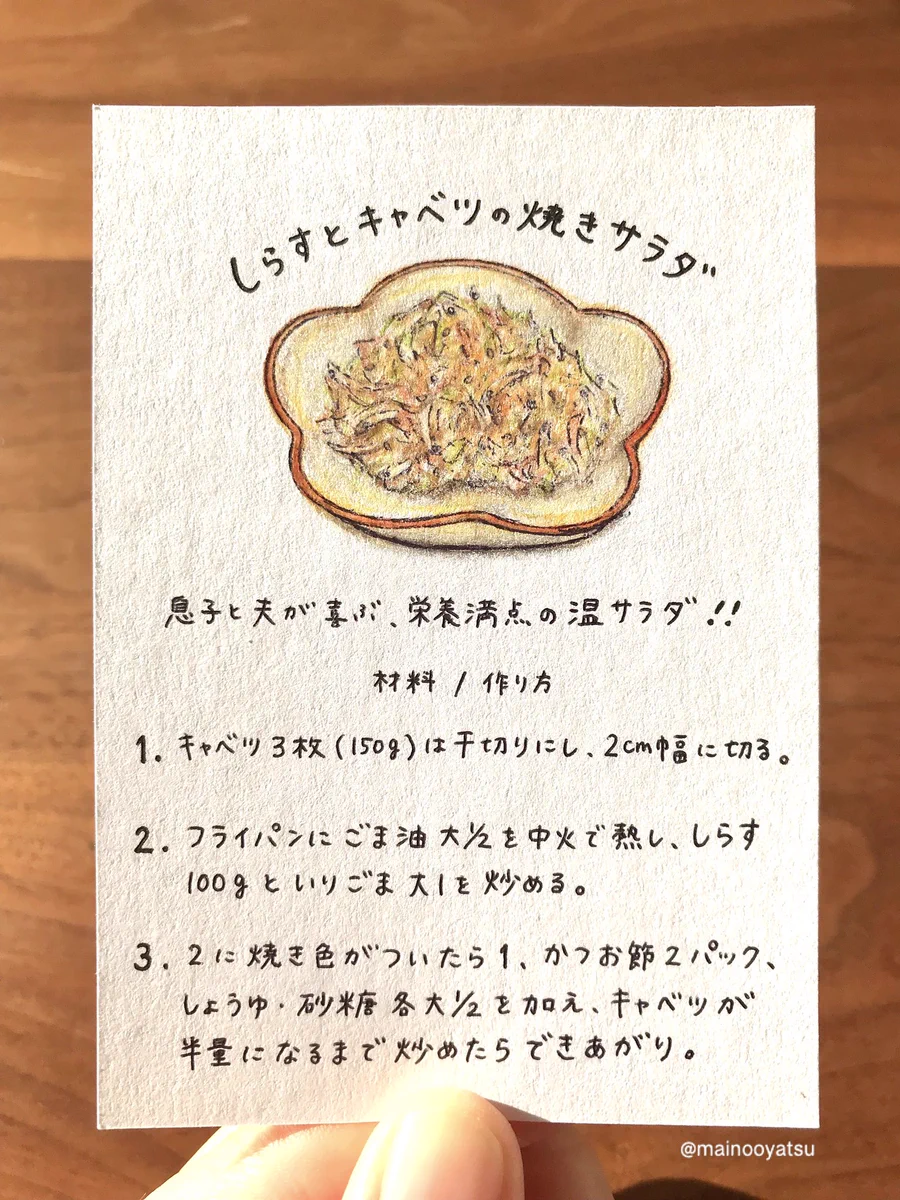 しらすとキャベツの焼きサラダ
息子と夫が喜ぶ、栄養満点の温サラダ!!
材料 / 作り方
1. キャベツ3枚(150g)は千切りにし、2cm幅に切る。
2. フライパンにごま油大1/2を中火で熱し、しらす
100gといりごま大1を炒める。
3. 2に焼き色がついたら1、かつお節2パック、
しょうゆ・砂糖各大1/2を加え、キャベツが
半量になるまで炒めたらできあがり。
@mainooyatsu